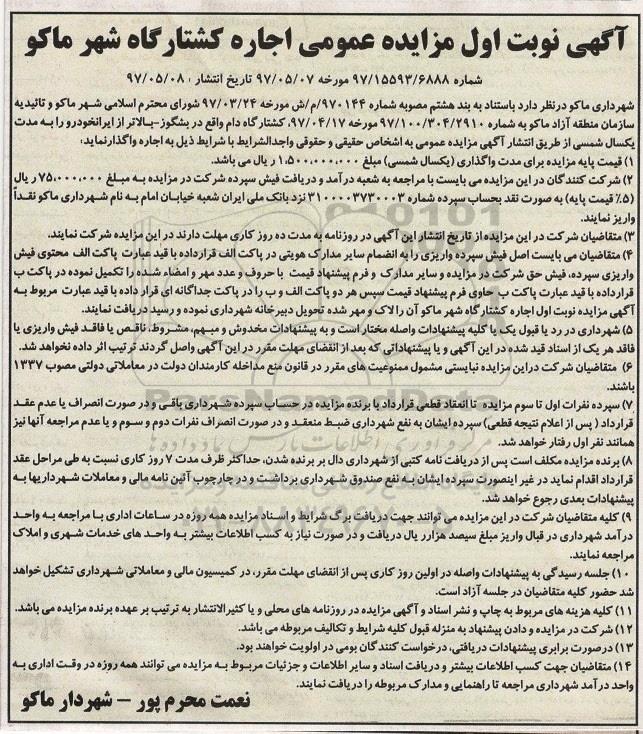 آگهی نوبت اول مزایده عمومی اجاره کشتارگاه شهر ماکو
شماره ۹۷/۱۵۵۹۳/۶۸۸۸ مورخه ۹۷/۰۵/۰۷ تاریخ انتشار : ۹۷/۰۵/۰۸
شهرداری ماکو درنظر دارد باستناد به بند هشتم مصوبه شماره ۹۷۰۱۴۴/م/ش مورخه ۹۷/۰۳/۲۴ شورای محترم اسلامی شهر ماکو و تائیدیه
سازمان منطقه آزاد ماکو به شماره ۹۷/۱۰۰/۳۰۴/۲۹۱۰ مورخه ۹۷/۰۴/۱۷، کشتارگاه دام واقع در بشگوز-بالاتر از ایرانخودرو را به مدت
یکسال شمسی از طریق انتشار آگهی مزایده عمومی به اشخاص حقیقی و حقوقی واجدالشرایط با شرایط ذیل به اجاره واگذارنماید:
۱) قیمت پایه مزایده برای مدت واگذاری (یکسال شمسی) مبلغ ۱,۵۰۰,۰۰۰,۰۰۰ ریال می باشد.
۲) شرکت کنندگان در این مزایده می بایست با مراجعه به شعبه درآمد و دریافت فیش سپرده شرکت در مزایده به مبلغ ۷۵,۰۰۰,۰۰۰ ریال
(۵٪ قیمت پایه) به صورت نقد بحساب سپرده شماره ۳۱۰۰۰۰۳۷۳۰۰۰۳ نزد بانک ملی ایران شعبه خیابان امام به نام شهرداری ماکو نقداً
واریز نمایند.
۳) متقاضیان شرکت در این مزایده از تاریخ انتشار این آگهی در روزنامه به مدت ده روز کاری مهلت دارند در این مزایده شرکت نمایند.
۴) متقاضیان می بایست اصل فیش سپرده واریزی را به انضمام سایر مدارک هویتی در پاکت الف قرارداده با قید عبارت پاکت الف محتوی فیش
واریزی سپرده، فیش حق شرکت در مزایده و سایر مدارک و فرم پیشنهاد قیمت با حروف و عدد مهر و امضاء شده را تکمیل نموده در پاکت ب
قرارداده با قید عبارت پاکت ب حاوی فرم پیشنهاد قیمت سپس هر دو پاکت الف و ب را در پاکت جداگانه ای قرار داده با قید عبارت مربوط به
آگهی مزایده نوبت اول اجاره کشتارگاه شهر ماکو آن را لاک و مهر شده تحویل دبیرخانه شهرداری نموده و رسید دریافت نمایند.
۵) شهرداری در رد یا قبول یک یا کلیه پیشنهادات واصله مختار است و به پیشنهادات مخدوش و مبهم، مشروط، ناقص یا فاقد فیش واریزی یا
فاقد هر یک از اسناد قید شده در این آگهی و یا پیشنهاداتی که بعد از انقضای مهلت مقرر در این آگهی واصل گردند ترتیب اثر داده نخواهد شد.
۶) متقاضیان شرکت دراین مزایده نبایستی مشمول ممنوعیت های مقرر در قانون منع مداخله کارمندان دولت در معاملاتی دولتی مصوب ۱۳۳۷
باشند.
۷) سپرده نفرات اول تا سوم مزایده تا انعقاد قطعی قرارداد با برنده مزایده در حساب سپرده شهرداری باقی و در صورت انصراف یا عدم عقد
قرارداد ( پس از اعلام نتیجه قطعی) سپرده ایشان به نفع شهرداری ضبط منعقد و در صورت انصراف نفرات دوم و سوم و یا عدم مراجعه آنها نیز
همانند نفر اول رفتار خواهد شد.
۸) برنده مزایده مکلف است پس از دریافت نامه کتبی از شهرداری دال بر برنده شدن، حداکثر ظرف مدت ۷ روز کاری نسبت به طی مراحل عقد
قرارداد اقدام نماید در غیر اینصورت سپرده ایشان به نفع صندوق شهرداری برداشت و در چارچوب آئین نامه مالی و معاملات شهرداریها به
پیشنهادات بعدی رجوع خواهد شد.
۹) کلیه متقاضیان شرکت در این مزایده می توانند جهت دریافت برگ شرایط و اسناد مزایده همه روزه در ساعات اداری با مراجعه به واحد
درآمد شهرداری در قبال واریز مبلغ سیصد هزارر یال دریافت و در صورت نیاز به کسب اطلاعات بیشتر به واحد های خدمات شهری و املاک
مراجعه نمایند.
۱۰) جلسه رسیدگی به پیشنهادات واصله در اولین روز کاری پس از انقضای مهلت مقرر، در کمیسیون مالی و معاملاتی شهرداری تشکیل خواهد
شد حضور کلیه متقاضیان در جلسه آزاد است.
۱۱) کلیه هزینه های مربوط به چاپ و نشر اسناد و آگهی مزایده در روزنامه های محلی و یا کثیرالانتشار به ترتیب بر عهده برنده مزایده می باشد.
۱۲) شرکت در مزایده و دادن پیشنهاد به منزله قبول کلیه شرایط و تکالیف مربوطه می باشد.
۱۳) درصورت برابری پیشنهادات دریافتی، درخواست کنندگان بومی در اولویت خواهند بود.
۱۴) متقاضیان جهت کسب اطلاعات بیشتر و دریافت اسناد و سایر اطلاعات و جزئیات مربوط به مزایده می توانند همه روزه در وقت اداری به
واحد درآمد شهرداری مراجعه تا راهنمایی و مدارک مربوطه را دریافت نمایند.
نعمت محرم پور - شهردار ماکو